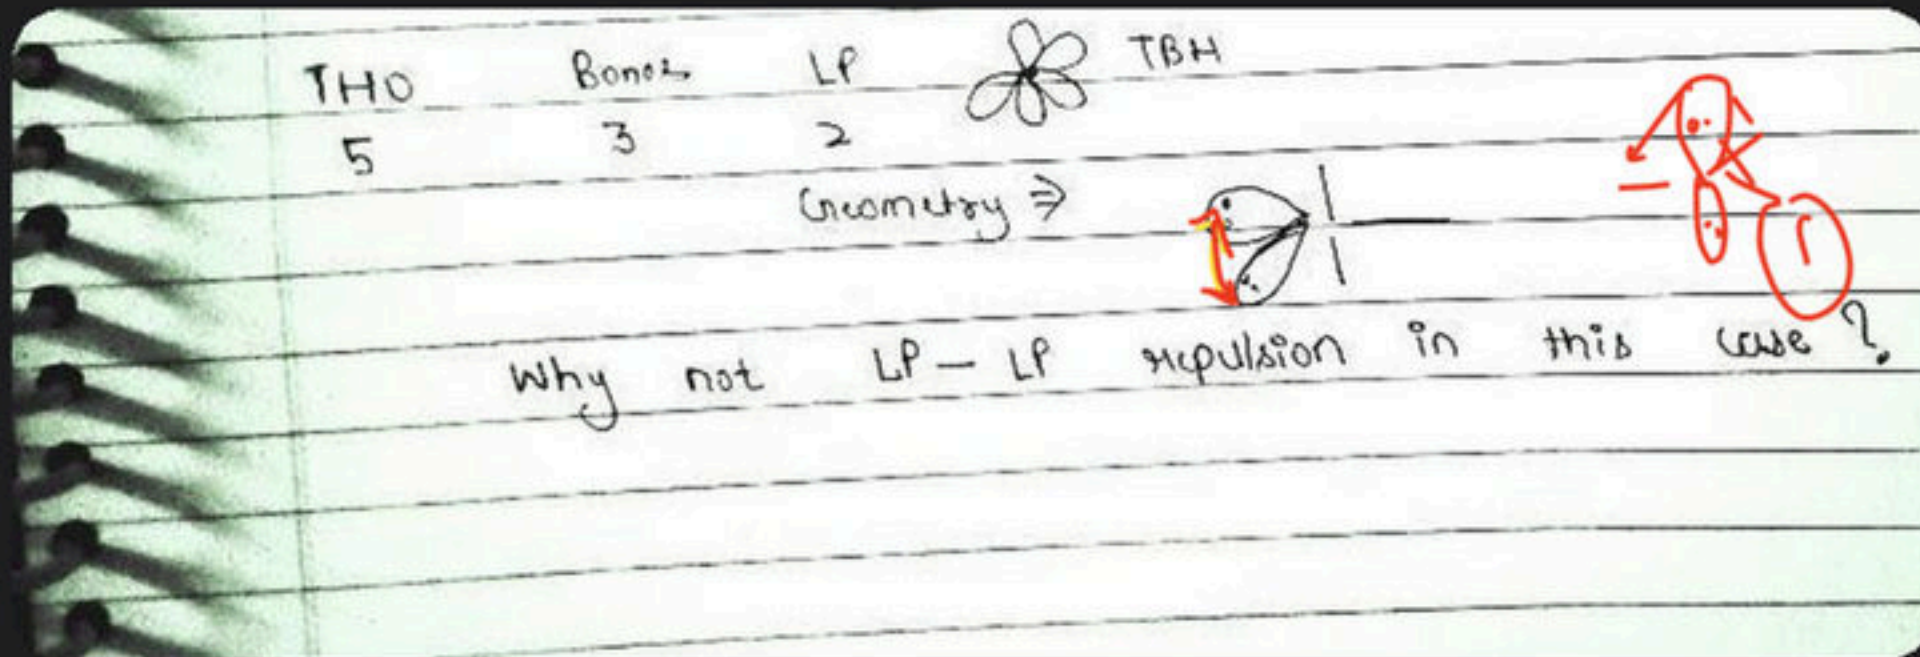 THO Bonds LP TBH
5 3 2
Geometry ⇒
Why not LP – LP repulsion in this case ?